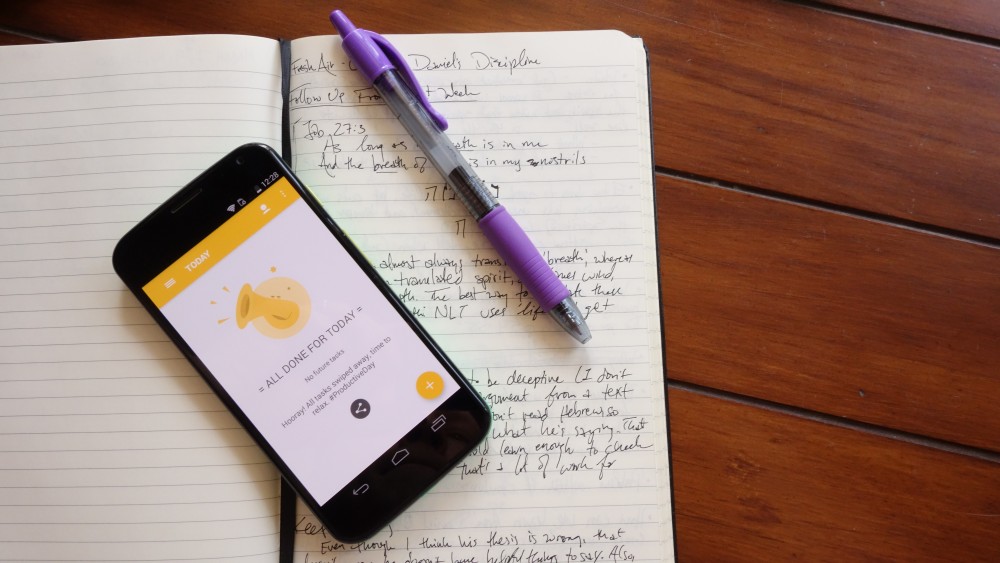 Fresh Air - Daniel's Discipline
Follow Up From Week
Job 27:3
As long as breath is in me
And the breath of is in my nostrils
almost always breath', whereas
translated spirit, wind,
The best way to
NLT uses 'life get
to be deceptive (I don't
argument from a text
don't read Hebrew so
what he's saying. That
learn enough to check
that's a lot of work for
Keep
Even though I think his thesis is wrong, that
doesn't have helpful things to say. Also,
12:28
TODAY
= ALL DONE FOR TODAY =
No future tasks
Hooray! All tasks swiped away, time to
relax. #ProductiveDay
+